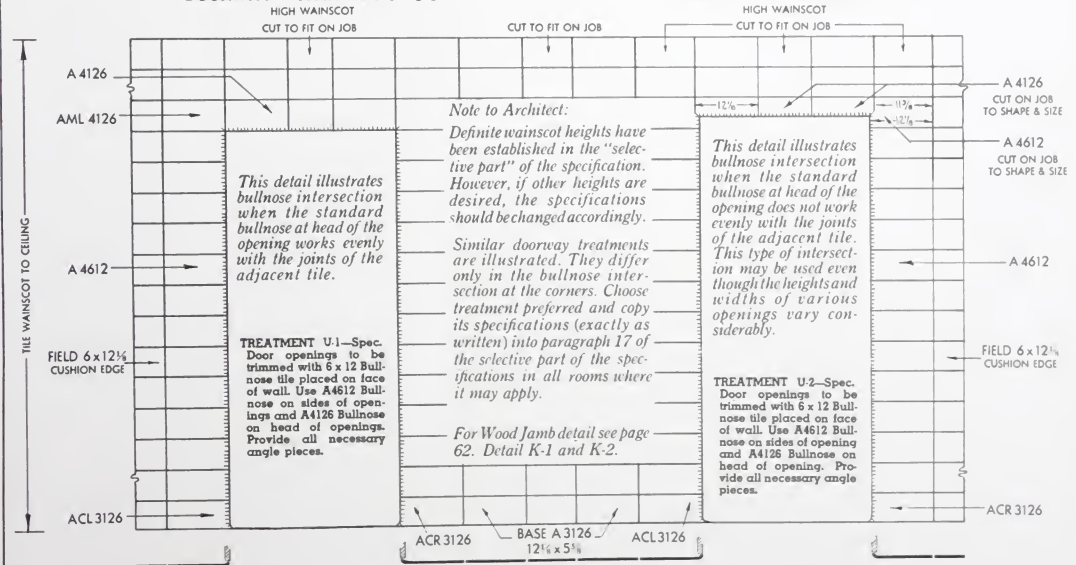 HIGH WAINSCOT
CUT TO FIT ON JOB
CUT TO FIT ON JOB
HIGH WAINSCOT
CUT TO FIT ON JOB
TILE WAINSCOT TO CEILING
A 4126
AML 4126
A 4612
FIELD 6 x 12 1/16
CUSHION EDGE
ACL 3126
This detail illustrates
bullnose intersection
when the standard
bullnose at head of the
opening works evenly
with the joints of the
adjacent tile.
TREATMENT U-1—Spec.
Door openings to be
trimmed with 6 x 12 Bull-
nose tile placed on face
of wall. Use A4612 Bull-
nose on sides of open-
ings and A4126 Bullnose
on head of openings.
Provide all necessary
angle pieces.
Note to Architect:
Definite wainscot heights have
been established in the "selec-
tive part" of the specification.
However, if other heights are
desired, the specifications
should be changed accordingly.
Similar doorway treatments
are illustrated. They differ
only in the bullnose inter-
section at the corners. Choose
treatment preferred and copy
its specifications (exactly as
written) into paragraph 17 of
the selective part of the spec-
ifications in all rooms where
it may apply.
For Wood Jamb detail see page
62. Detail K-1 and K-2.
ACR 3126
BASE A 3126
ACL 3126
12 1/16
This detail illustrates
bullnose intersection
when the standard
bullnose at head of the
opening does not work
evenly with the joints
of the adjacent tile.
This type of intersect-
ion may be used even
though the heights and
widths of various
openings vary con-
siderably.
TREATMENT U-2—Spec.
Door openings to be
trimmed with 6 x 12 Bull-
nose tile placed on face
of wall. Use A4612 Bull-
nose on sides of opening
and A4126 Bullnose on
head of opening. Pro-
vide all necessary angle
pieces.
12 1/16
A 4126
CUT ON JOB
TO SHAPE & SIZE
A 4612
CUT ON JOB
TO SHAPE & SIZE
A 4612
FIELD 6 x 12 1/16
CUSHION EDGE
ACR 3126